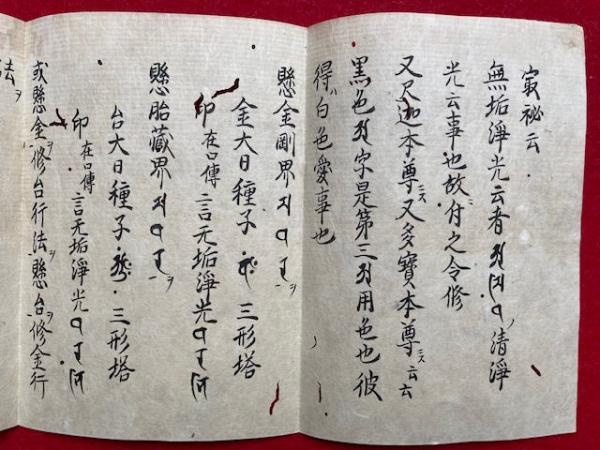 寂秘云
無垢淨光云者 清淨
光云事也故付之令修
又尺迦本尊ニス又多寶本尊ニス云云
黒色 字是第三 用色也彼
得白色愛事也
懸金剛界
金大日種子 三形塔
印在口傳 言无垢淨光
懸胎藏界 ヲ
台大日種子 三形塔
印在口傳 言无垢淨光
或懸金ヲ修台行法懸台ヲ修金行
法ヲ